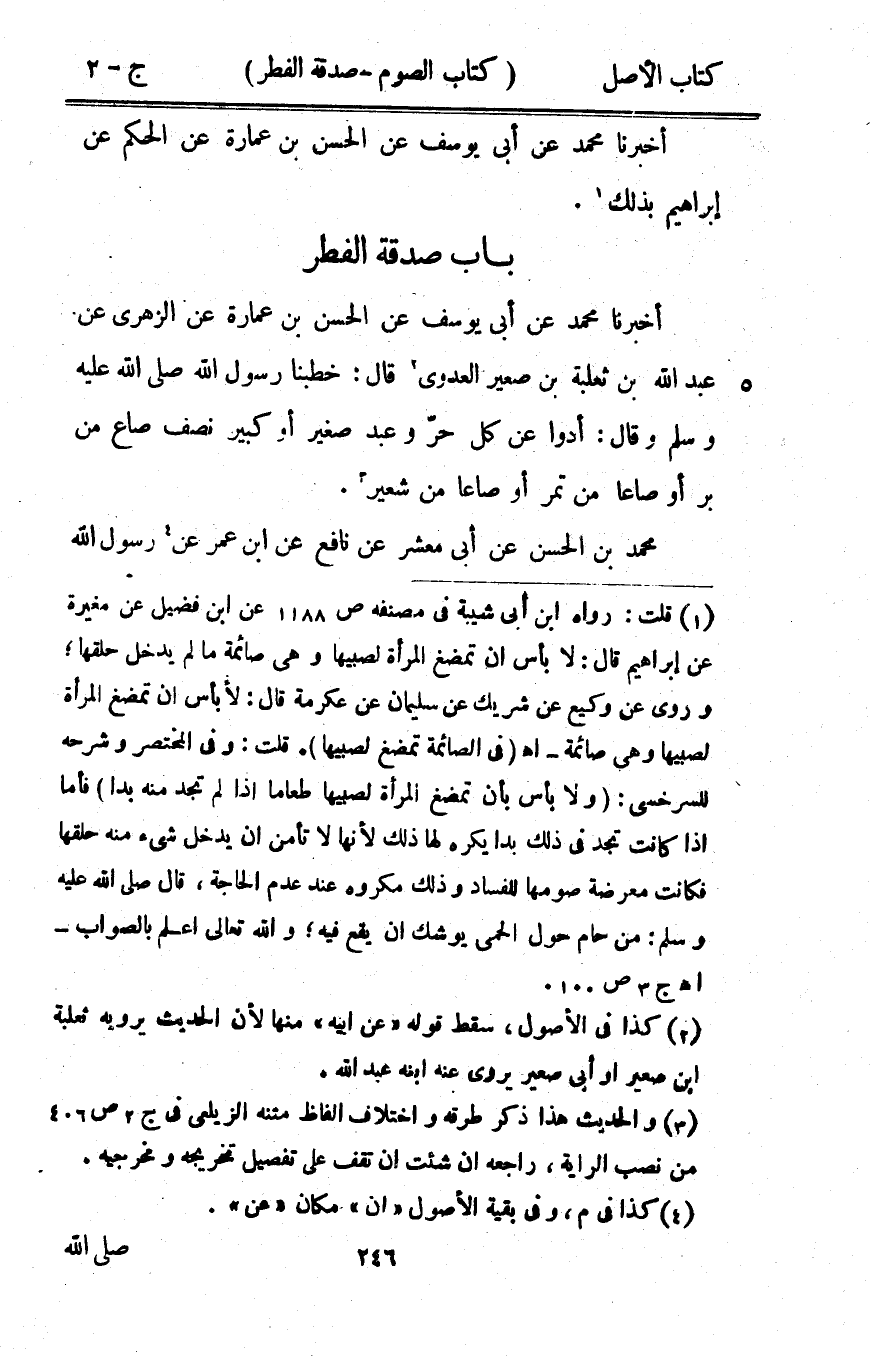 كتاب الأصل ( كتاب الصوم - صدقة الفطر ) ج - ٢
أخبرنا محمد عن أبى يوسف عن الحسن بن عمارة عن الحكم عن
إبراهيم بذلك ١ .
بــاب صدقة الفطر
أخبرنا محمد عن أبى يوسف عن الحسن بن عمارة عن الزهرى عن
٥ عبد الله بن ثعلبة بن صعير العدوى ٢ قال : خطبنا رسول الله صلى الله عليه
و سلم و قال : أدوا عن كل حرّ و عبد صغير أو كبير نصف صاع من
بر أو صاعا من تمر أو صاعا من شعير ٣ .
محمد بن الحسن عن أبى معشر عن نافع عن ابن عمر عن ٤ رسول الله
(١) قلت : رواه ابن أبى شيبة فى مصنفه ص ١١٨٨ عن ابن فضيل عن مغيرة
عن إبراهيم قال : لا بأس ان تمضغ المرأة لصبيها و هى صائمة ما لم يدخل حلقها ؛
و روى عن وكيع عن شريك عن سليمان عن عكرمة قال : لأبأس ان تمضغ المرأة
لصبيها وهى صائمة ـ اه ( فى الصائمة تمضغ لصبيها ) . قلت : و فى المختصر و شرحه
للسرخسى : ( و لا بأس بأن تمضغ المرأة لصبيها طعاما اذا لم تجد منه بدا ) فأما
اذا كانت تجد فى ذلك بدا يكره لها ذلك لأنها لا تأمن ان يدخل شىء منه حلقها
فكانت معرضة صومها للفساد و ذلك مكروه عند عدم الحاجة ، قال صلى الله عليه
و سلم : من حام حول الحمى يوشك ان يقع فيه ؛ و الله تعالى اعـلم بالصواب ـ
اه ج ٣ ص ١٠٠ .
(٢) كذا فى الأصول ، سقط قوله «عن ابيه» منها لأن الحديث يرويه ثعلبة
ابن صعير او أبى صعير يروى عنه ابنه عبد الله .
(٣) و الحديث هذا ذكر طرقه و اختلاف الفاظ متنه الزيلعى فى ج ٢ ص ٤٠٦
من نصب الراية ، راجعه ان شئت ان تقف على تفصيل تخريجه و مخرجيه .
(٤) كذا فى م ، و فى بقية الأصول «ان» مكان «عن» .
٢٤٦ صلى الله